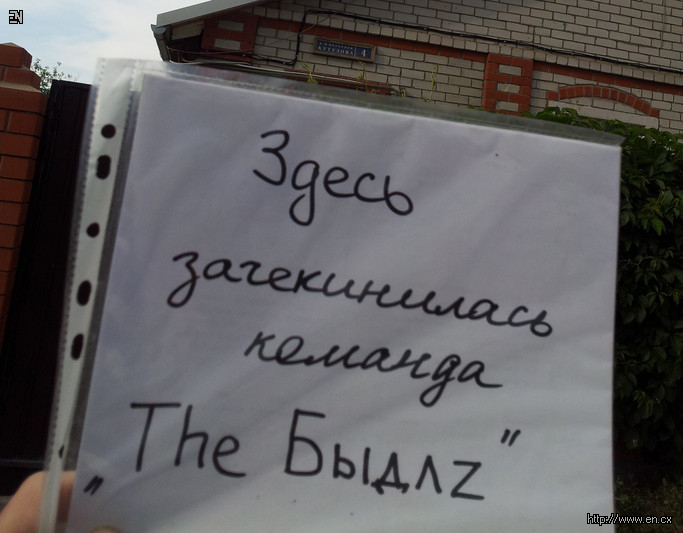 EN
4
Здесь
зачекинилась
команда
„The Быдлz"
http://www.en.cx